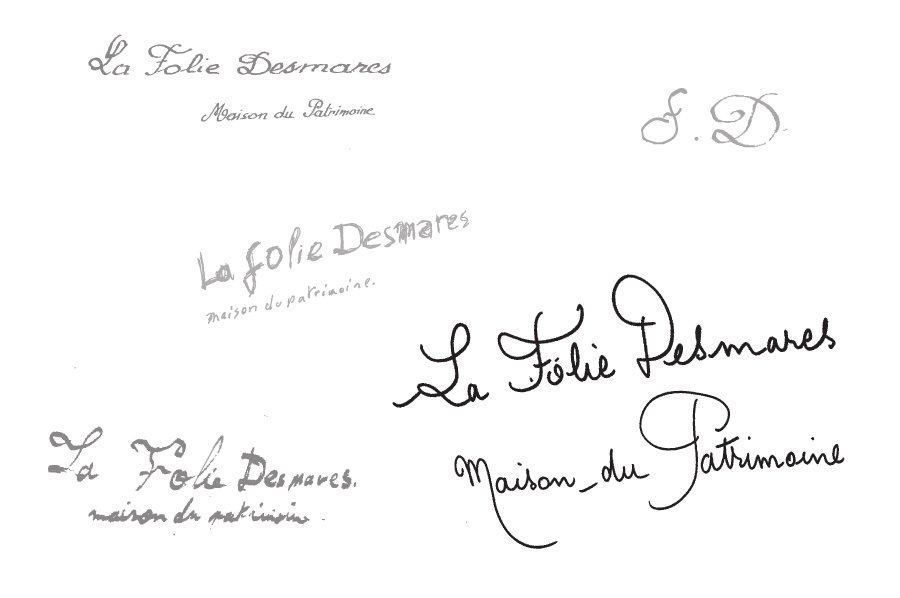 La Folie Desmares
Maison du Patrimoine
F. D.
La folie Desmares
maison du patrimoine.
La Folie Desmares
Maison du Patrimoine
La Folie Desmares.
maison du patrimoin.